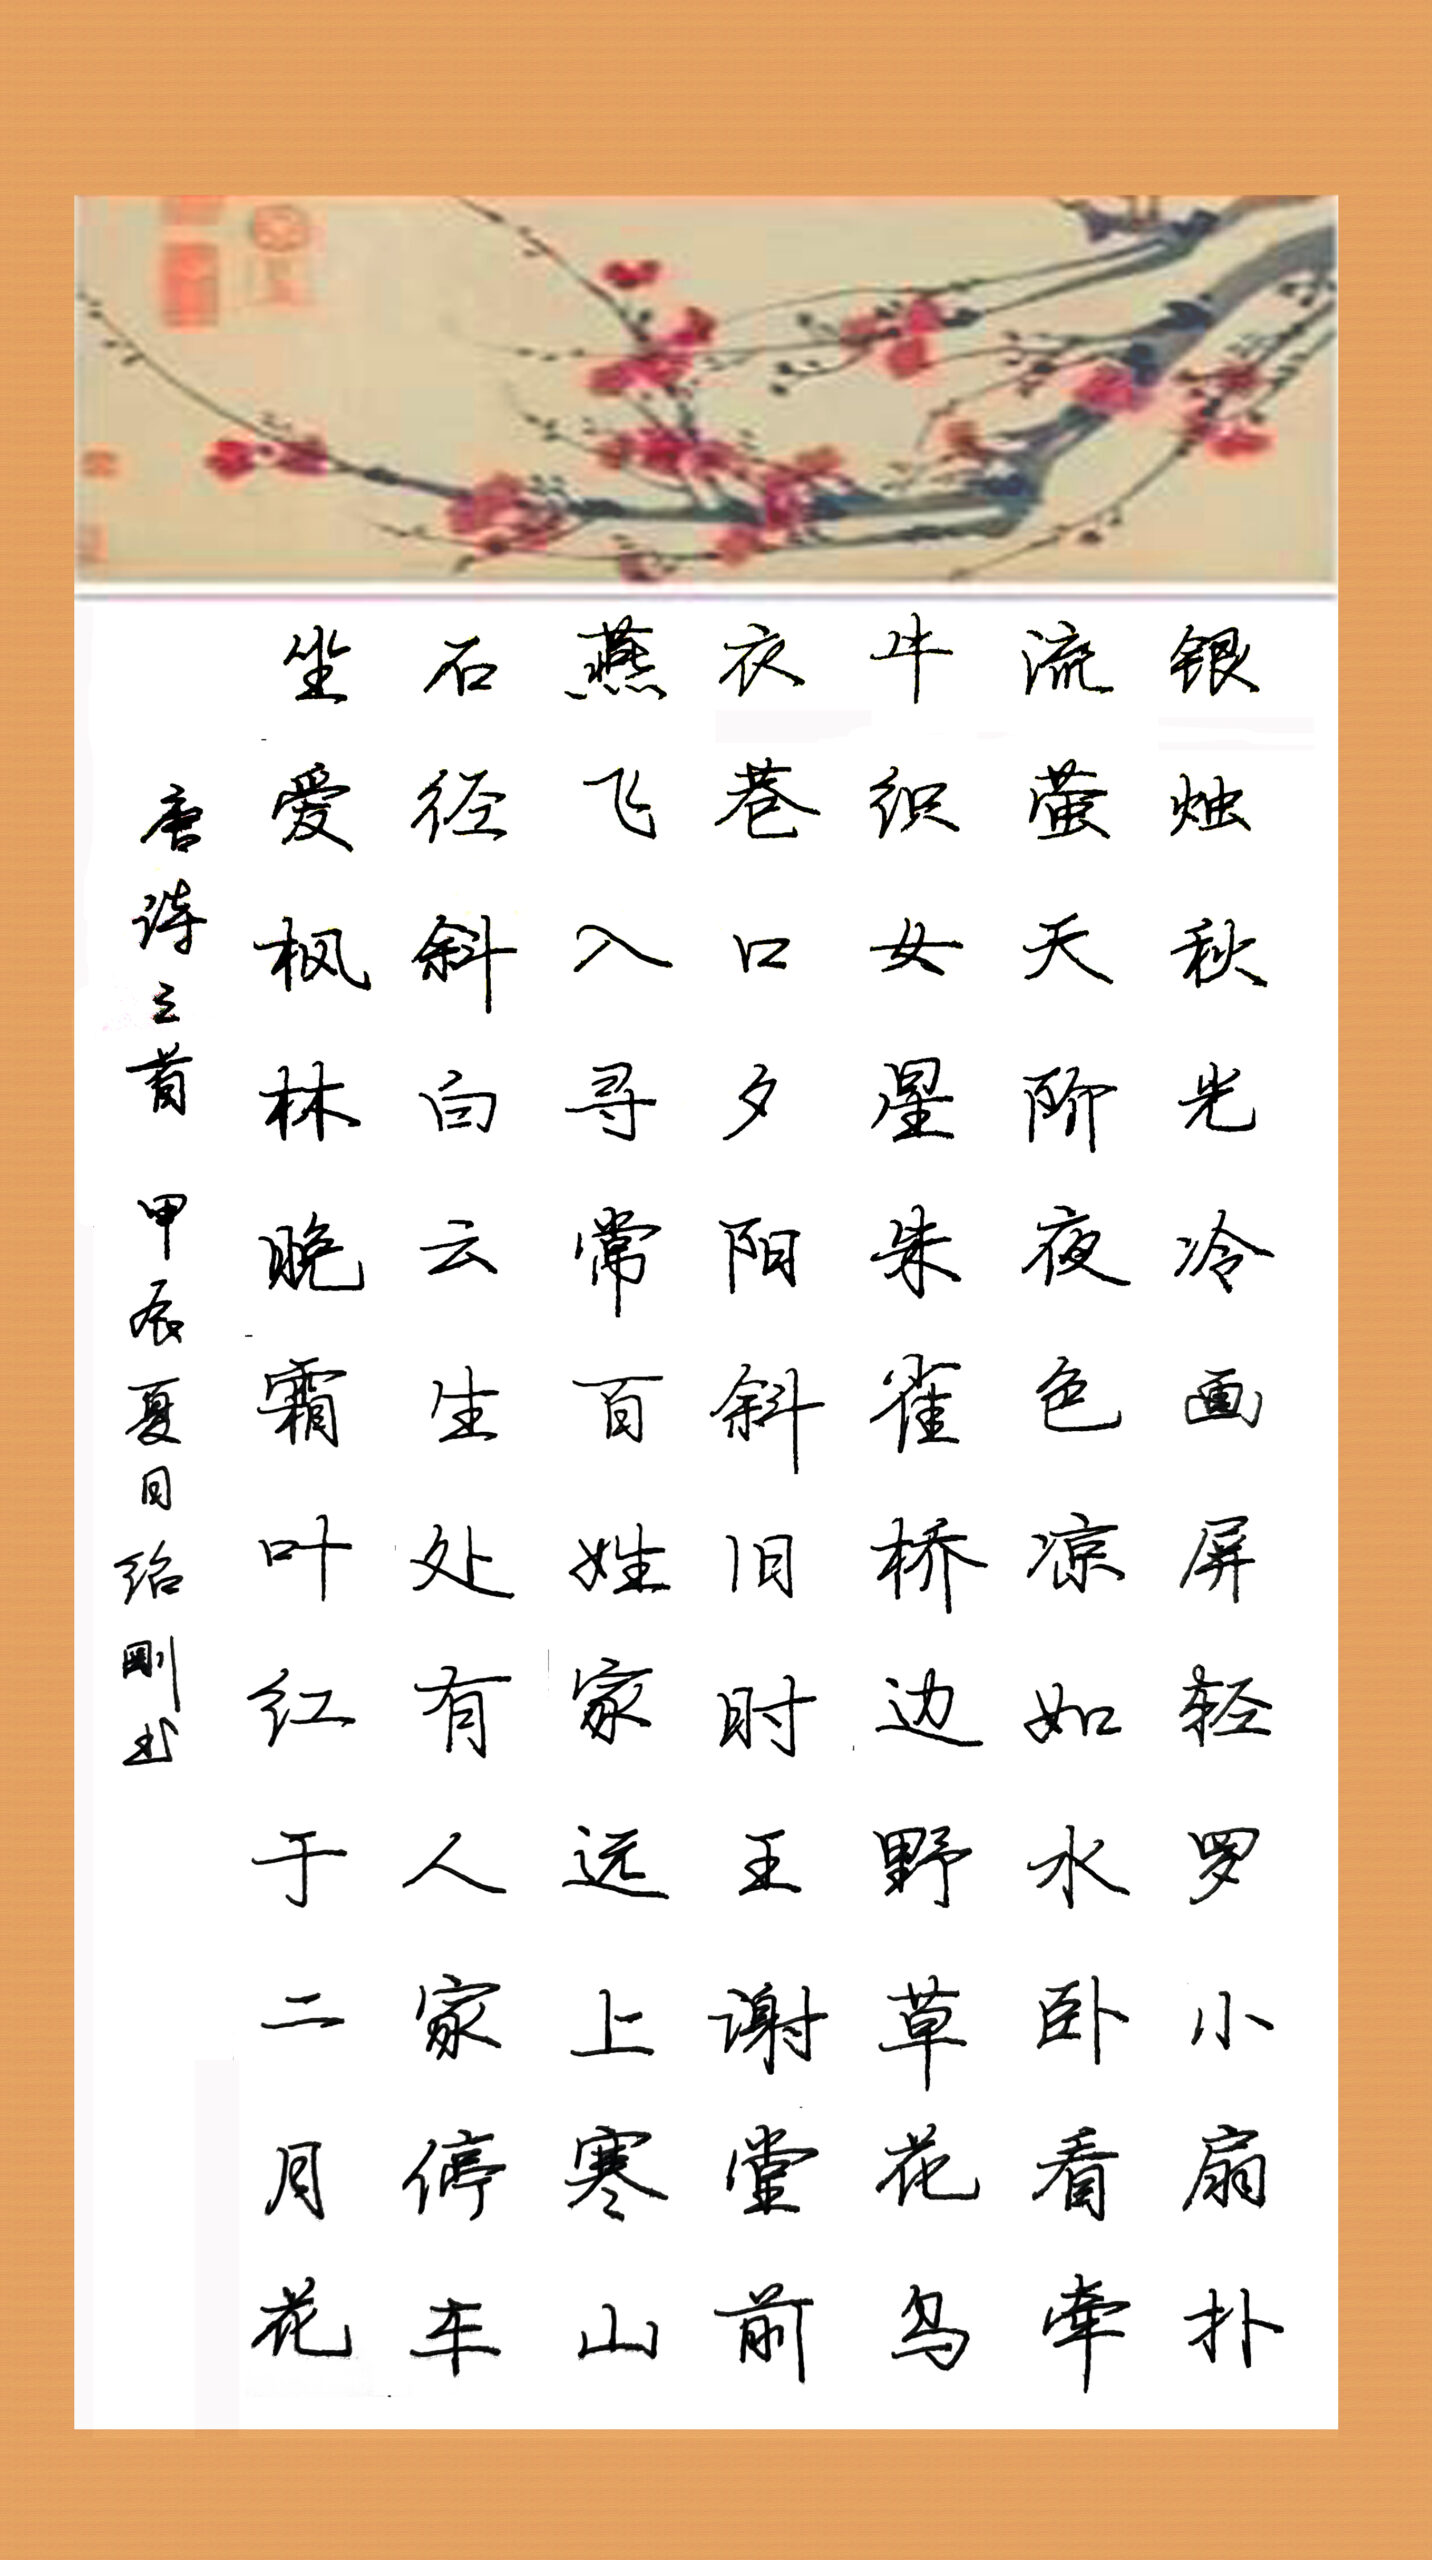 银烛秋光冷画屏轻罗小扇扑
流萤天阶夜色凉如水卧看牵
牛织女星朱雀桥边野草花乌
衣巷口夕阳斜旧时王谢堂前
燕飞入寻常百姓家远上寒山
石径斜白云生处有人家停车
坐爱枫林晚霜叶红于二月花
唐诗三首 甲辰夏日绍刚书